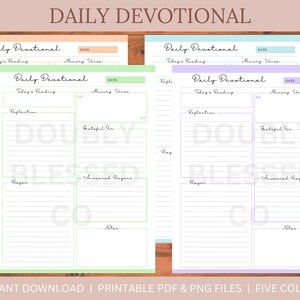 DAILY DEVOTIONAL
Daily Devotional
DATE:
Daily Devotional
DATE:
Today's Reading
Memory Verse
Today's Reading
Memory Verse
Daily Devotional
DATE:
Daily Devotional
DATE:
Today's Reading
Memory Verse
Today's Reading
Memory Verse
Reflection
Reflection
Grateful For
Grateful For
DOUBLY
BLESSED
CO
DOUBLY
BLESSED
CO
Prayer
Answered Prayers
Prayer
Answered Prayers
Notes
Notes
ANT DOWNLOAD | PRINTABLE PDF & PNG FILES | FIVE COL